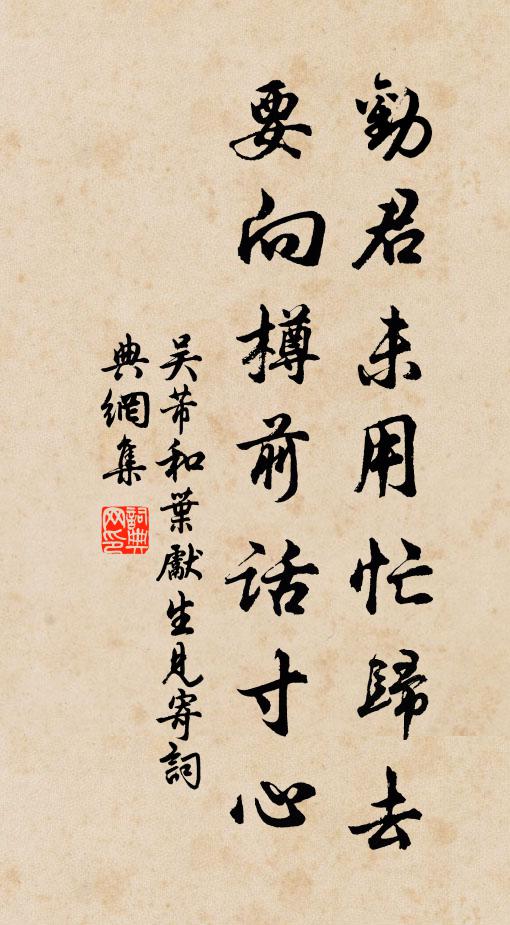 勸君未用忙歸去
要向樽前話寸心
吴芾和葉獻生見寄詞
典網集
詞典網印